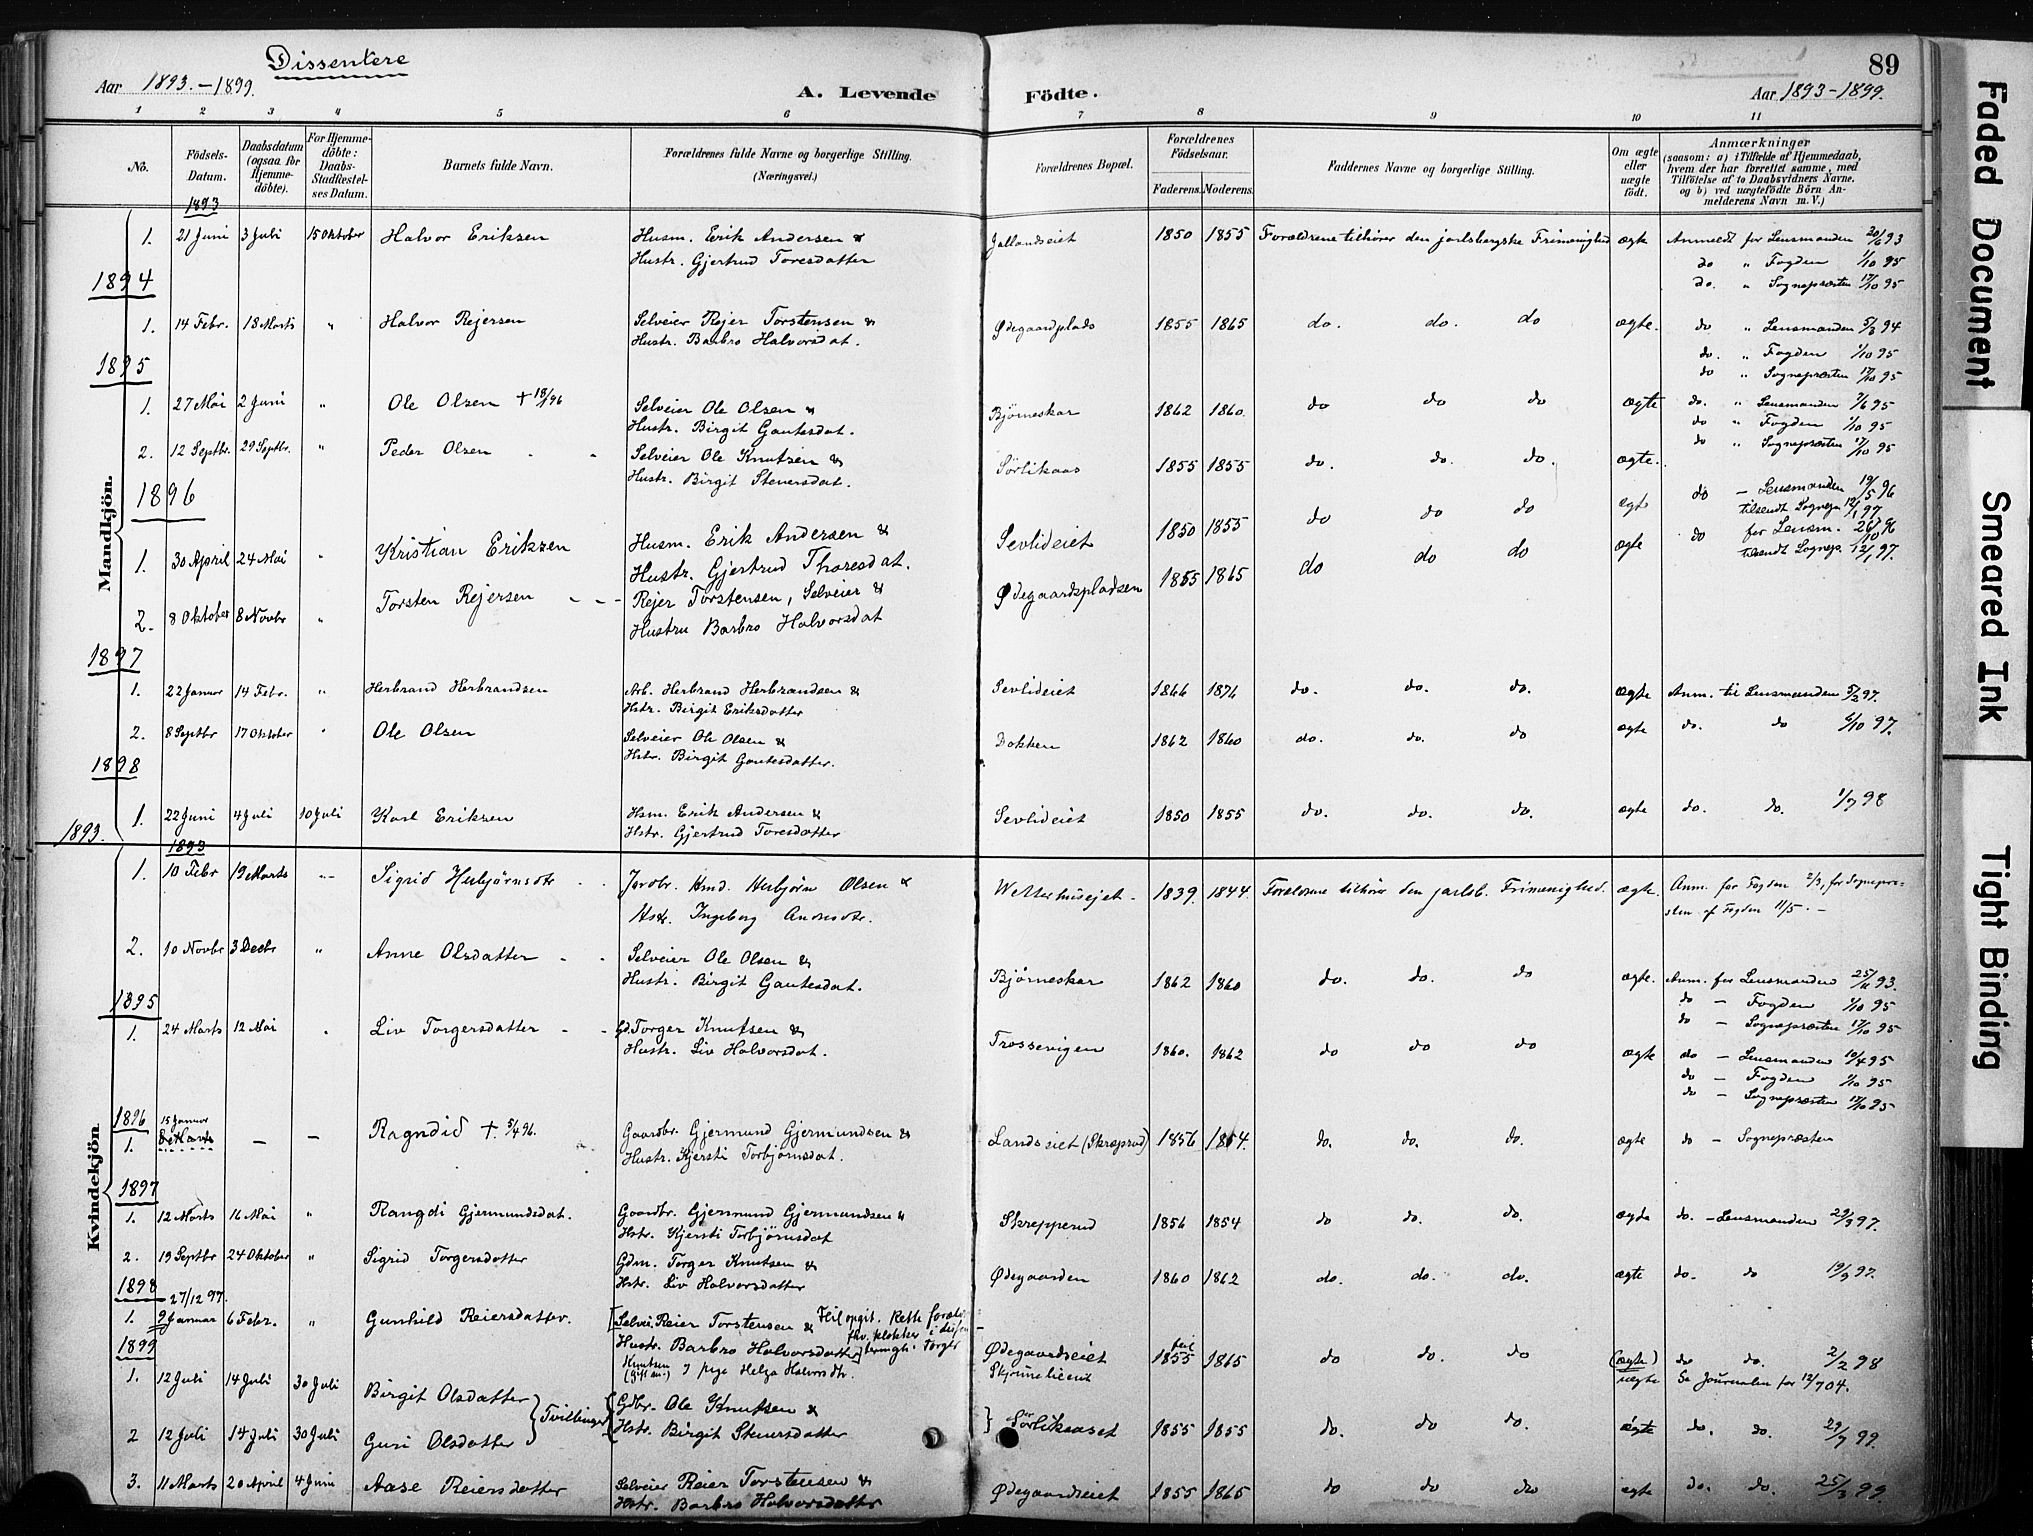 Dissentere
Aar 1893.-1899.
A. Levende Födte.
Aar 1893-1899.
89
1 2 3 4 5 6 7 8 9 10 11
No.
Födsels-Datum.
Daabsdatum (ogsaa for Hjemme-döbte).
For Hjemme-döbte: Daabs-Stadfæstel-ses Datum.
Barnets fulde Navn.
Forældrenes fulde Navne og borgerlige Stilling. (Næringsvei.)
Forældrenes Bopæl.
Forældrenes Födselsaar.
Faderens. Moderens.
Faddernes Navne og borgerlige Stilling.
Om ægte eller uægte födt.
Anmærkninger
(saasom: a) i Tilfælde af Hjemmedaab, hvem der har forrettet samme, med Tilföielse af to Daabsvidners Navne. og b) ved uægtefödte Börn An-melderens Navn m. V.)
Mandkjön.
1893
1. 21 Juni 3 Juli 15 Oktober Halvor Eriksen Husm. Erik Andersen & Jallandseiet 1850 1855 Forældrene tilhører den jarlsbergske Frimenighed ægte Anmeldt for Lensmanden 20/6 93
Hustr. Gjertrud Toresdatter do " Fogden 1/10 95
1894 do. " Sognepræsten 17/10 95
1. 14 Febr. 18 Marts " Halvor Rejersen Selveier Rejer Torstensen & Ødegaardplads 1855 1865 do. do. do ægte. do " Lensmanden 5/3 94
Hustr. Barbro Halvorsdat. do. " Fogden 1/10 95
1895 do " Sognepræsten 17/10 95
1. 27 Mai 2 Juni " Ole Olsen + 18/ 96 Selveier Ole Olsen & Bjørneskar 1862 1860. do do do ægte do. " Lensmanden 7/6 95
Hustr. Birgit Gautesdat. do " Fogden 1/10 95
2. 12 Septbr. 29 Septbr. " Peder Olsen Selveier Ole Knutsen & Sørlikaas 1855 1855 do. do. do. ægte. do " Sognepræsten 17/10 95
Hustr. Birgit Steversdat.
1896 do - Lensmanden 19/5 96
tilsendt Sognepr 12/1 97
1. 30 April 24 Mai " Kristian Eriksen Husm. Erik Andersen & Sevlideiet 1850 1855 do do do ægt do for Lensm. 26/10 96
Hustr. Gjertrud Thoresdat. tilsendt Sognep. 12/1 97.
2. 8 Oktober 8 Novbr " Torsten Rejersen Rejer Torstensen, Selveier & Ødegaardspladsen 1855 1865 do do do ægte
Hustru Barbro Halvorsdat
1897
1. 22 Januar 14 Febr. " Herbrand Herbrandsen Arb. Herbrand Herbrandsen & Sevlideiet 1866 1871 do. do. do. ægte Anm. til Lensmanden 5/2 97.
Hstr. Birgit Eriksdatter
2. 8 Septbr 17 Oktober " Ole Olsen Selveier Ole Olsen & Dokken 1862 1860 do. do. do ægte do. do 6/10 97.
Hstr. Birgit Gautesdatter.
1898
1. 22 Juni 4 Juli 10 Juli Karl Eriksen Hsm. Erik Andersen & Sevlideiet 1850 1855 do. do. do. ægte do. do. 1/7 98
Hstr. Gjertrud Toresdatter
Kvindekjön.
1893.
1893
1. 10 Febr 19 Marts Sigrid Herbjørnsdtr Jordbr. Hmd. Herbjørn Olsen & Wetterhusejet 1839. 1844. Forældrene tilhører den jarlsb. Frimenighed. ægte. Anm. for Fogden 2/3, for Sognepræ-
Hstr. Ingeborg Andresdtr. sten af Fogden 11/5. -
2. 10 Novbr 3 Decbr " Anne Olsdatter Selveier Ole Olsen & Bjørneskar 1862 1860 do. do. do ægte. Anm. for Lensmanden 25/11 93.
Hustr. Birgit Gautesdat. do - Fogden 1/10 95
1895 do - Sognepræsten 17/10 95
1. 24 Marts 12 Mai " Liv Torgersdatter Gd. Torger Knutsen & Trossevigen 1860. 1862 do do do ægte do - Lensmanden 10/4 95
Hustr. Liv Halvorsdat. do - Fogden 1/10 95
do - Sognepræsten 17/10 95
1896 15 Januar
1. - - Ragndid +. 5/4 96. Gaardbr. Gjermund Gjermundsen & Landseiet (Skreprud) 1856 1854. do. do. do. ægte do - Sognepræsten
Hustr. Kjersti Torbjørnsdat.
1897
1. 12 Marts 16 Mai " Rangdi Gjermundsdat. Gaardbr. Gjermund Gjermundsen & Skrepperud 1856 1854 do do. do. ægde do. - Lensmanden 29/3 97.
Hstr. Kjersti Torbjørnsdat
2. 19 Septbr 24 Oktober " Sigrid Torgersdatter Gdm. Torger Knutsen & Ødegaarden 1860 1862 do. do. do. ægte do. do 19/9 97.
Hstr. Liv Halvorsdatter
1898 27/12 97.
1. 9 Januar 6 Febr. " Gunhild Reiersdatter. [Selvei. Reier Torstensen & Ødegaardseiet feil 1855 1865 do do. do (ægte) do do. 2/2 98
Hustr. Barbro Halvorsdatter] Torger uægte Se Journalen for 12/7 04.
Knutsen (gift m.) & pige Helga Halvorsdtr.
1899
1. 12 Juli 14 Juli 30 Juli Birgit Olsdatter } Tvillinger { Gdbr. Ole Knutsen & } Sørlikaaset 1855 1855 do. do do. ægte do. do. 29/7 99.
2 12 Juli 14 Juli 30 Juli Guri Olsdatter Hstr. Birgit Steversdatter
3. 11 Marts 20 April 4 Juni Aase Reiersdatter Selveier Reier Torstensen & Ødegaardseiet 1855 1865 do do do ægte do. do. 25/3 99.
Hstr. Barbro Halvorsdatter
Faded Document
Smeared Ink
Tight Binding